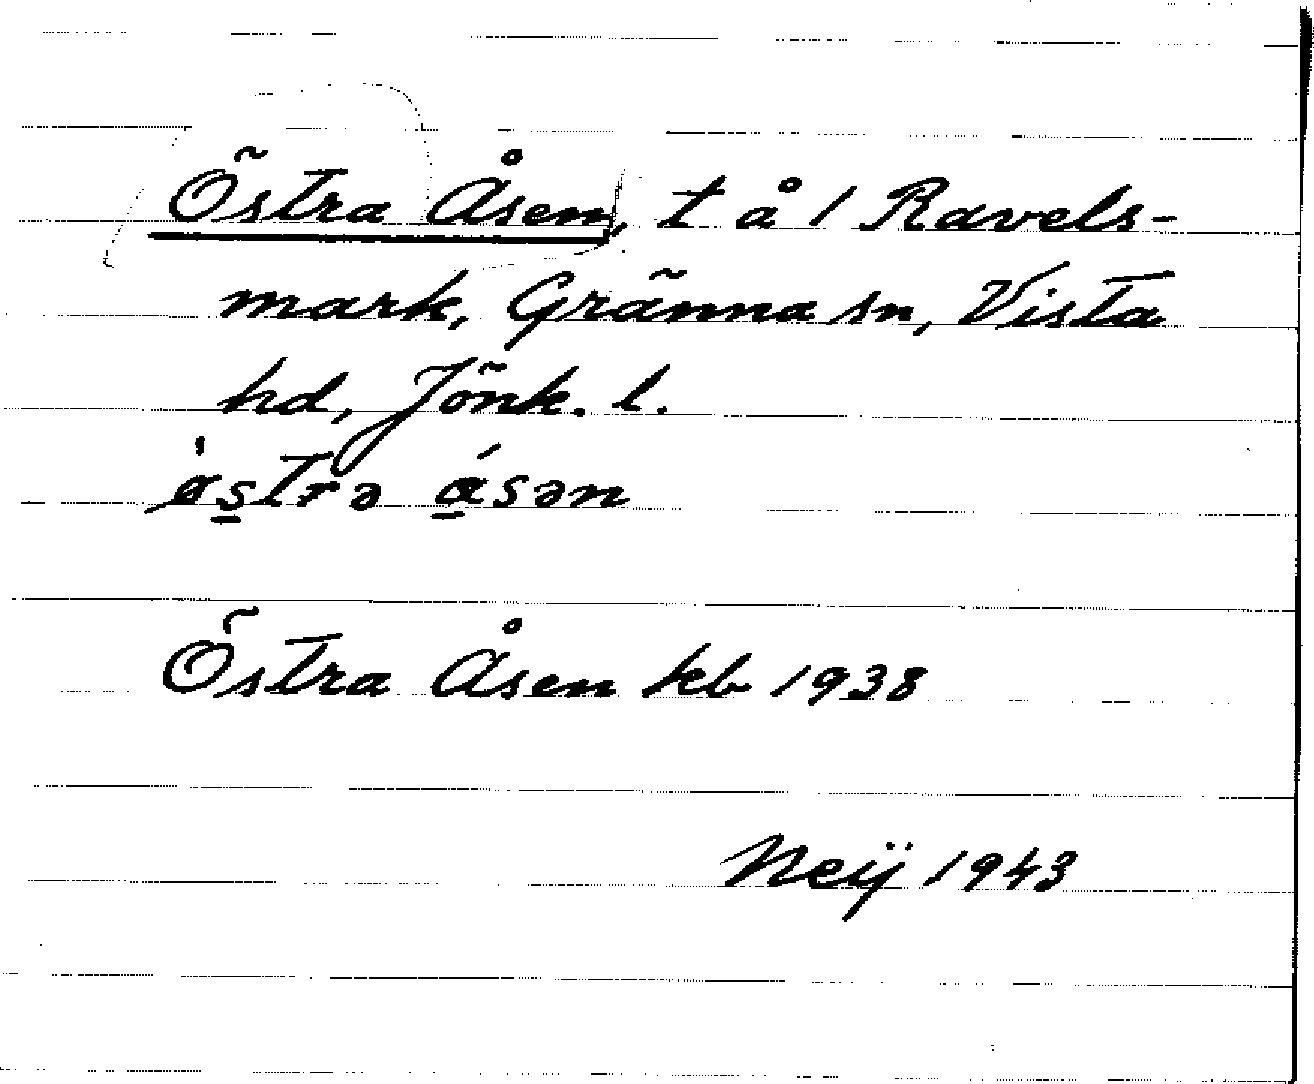 Östra Åsen, t å 1 Ravels-
mark, Gränna sn, Vista
hd, Jönk. l.
Östra Åsen kb 1938
Neij 1943